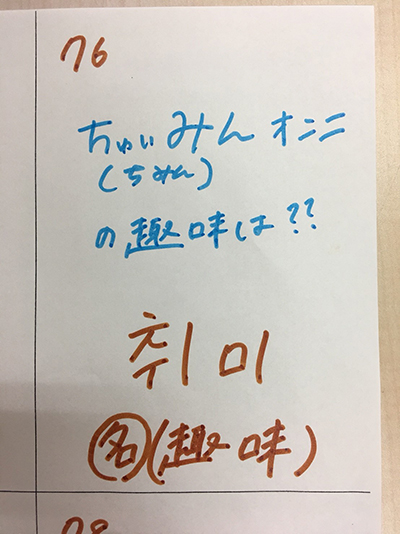 76
ちゅぃみん オンニ
(ちみん)
の趣味は??
취미
名(趣味)